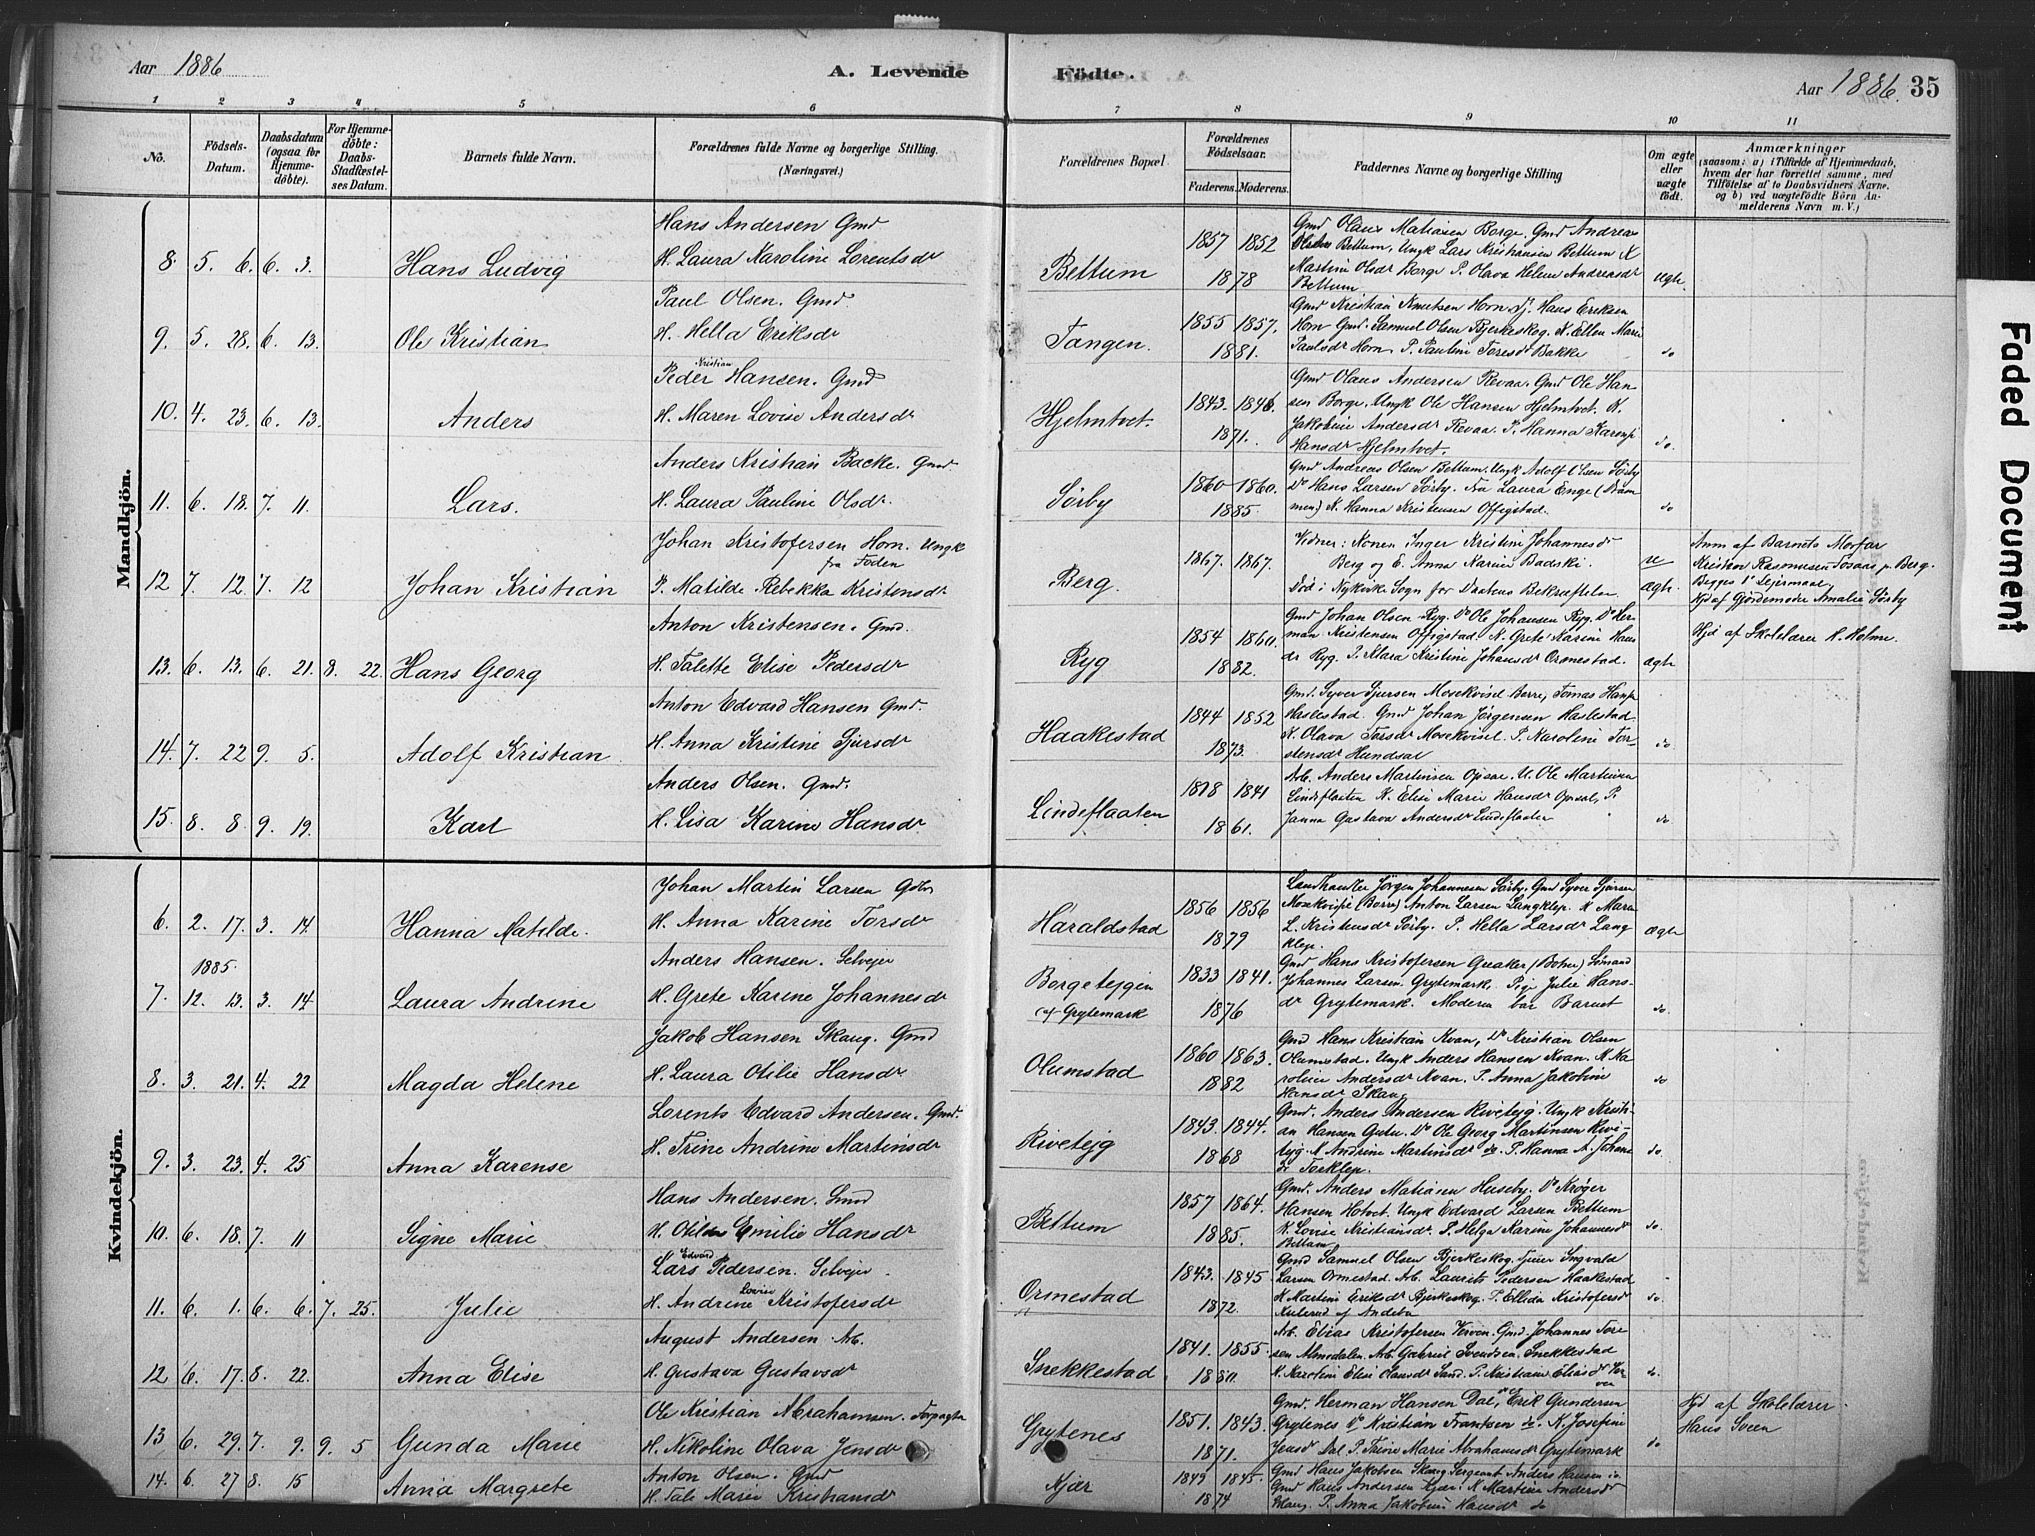 Aar 1886
A. Levende Födte.
Aar 1886. 35
1 2 3 4 5 6 7 8 9 10 11
No.
Födsels-Datum.
Daabsdatum (ogsaa for Hjemmedöbte).
For Hjemmedöbte: Daabs-Stadfæstelses Datum.
Barnets fulde Navn.
Forældrenes fulde Navne og borgerlige Stilling. (Næringsvei.)
Forældrenes Bopæl.
Forældrenes Födselsaar.
Faderens. Moderens.
Faddernes Navne og borgerlige Stilling
Om ægte eller uægte födt.
Anmærkninger
(saasom: a) i Tilfælde af Hjemmedaab, hvem der har forrettet samme, med Tilföielse af to Daabsvidners Navne. og b) ved uægtefödte Börn Anmelderens Navn m. V.)
Mandkjön.
8. 5. 6. 6. 3. Hans Ludvig
Hans Andersen Gmd
H. Laura Karoline Lorentsdr
Bettum
1857 1852
1878
Gmd Olaus Matiasen Borge. Gmd Andreas
Olsen Bettum, Ungk Lars Kristiansen Bettum K
Martine Olsdr Borge P. Olava Helene Andreasdr
Bettum
Ægte.
9. 5. 28. 6. 13. Ole Kristian
Paul Olsen. Gmd
H. Hella Eriksdr
Tangen.
1855 1857.
1881.
Gmd Kristian Knutsen Horn. Hans Eriksen
Horn Gmd. Samuel Olsen Bjerkeskog. K. Ellen Marie
Paulsdr Horn P. Pauline Toresdr Bakke
do
10. 4. 23. 6. 13. Anders
Peder Kristian Hansen. Gmd
H. Maren Lovise Andersdr
Hjelmtvet.
1843. 1846.
1871.
Gmd Olaus Andersen Revaa. Gmd Ole Hansen
Borge. Ungk Ole Hansen Hjelmtvet. K.
Jakobine Andersdr Revaa. P. Hanna Karine
Hansdr Hjelmtvet.
do.
11. 6. 18. 7. 11. Lars.
Anders Kristian Backe. Gmd
H. Laura Pauline Olsdr.
Sörby
1860 1860.
1885.
Gmd Andreas Olsen Bettum. Ungk Adolf Olsen Sörby
Do Hans Larsen Sörby. Fru Laura Enge (Drammen)
K. Hanna Kristensen Offigstad.
do
12 7. 12. 7. 12 Johan Kristian
Johan Kristofersen Horn. Ungk
fra Foden
P. Matilde Rebekka Kristensdr
Berg.
1867. 1867.
Vidner: Konen Inger Kristine Johannesdr
Berg og E. Anna Karine Badski.
Död i Nykirke Sogn för Daabens Bekræftelse.
U
Ægte.
Anm af Barnets Morfar
Kristen Rasmussen Fosaas p. Berg.
Begges 1ste Lejermaal.
Hjd af Gjördemoder Amalie Sörby
13. 6. 13. 6. 21. 8. 22. Hans Georg
Anton Kristensen. Gmd.
H. Talette Elise Pedersdr
Ryg
1854 1860.
1882.
Gmd Johan Olsen Ryg. Do Ole Johansen Ryg. Do Herman
Kristensen Offigstad. K. Grete Karine Hansdr
Ryg. P. Klara Kristine Johansdr Ormestad.
Ægte
Hjd af Skolelærer H. Holme.
14. 7. 22. 9. 5. Adolf Kristian
Anton Edvard Hansen Gmd
H. Anna Kristine Sjursdr
Haakestad
1844 1852
1873.
Gmd. Syver Sjursen Moskvisel Borre, Tomas Hansen
Haslestad. Gmd Johan Jørgensen Haslestad.
K. Olava Torsdr Moskvisel. P. Karoline Torstensdr
Hundsal
do
15. 8. 8. 9. 19. Karl
Anders Olsen. Gmd.
H. Lisa Karine Hansdr
Lindeflaaten
1818 1841
1861.
Arb. Anders Martinsen Opsal. U. Ole Martinsen
Lindeflaaten K. Elise Marie Hansdr Opsal, P.
Janna Gustava Andersdr Lindeflaaten
do.
Kvindekjön.
6. 2. 17. 3. 14. Hanna Matilde.
Johan Martin Larsen Gdbr
H. Anna Karine Torsdr
Haraldstad
1856 1856
1879
Landhandler Jörgen Johannesen Sörby. Gmd Syver Sjursen
Moskvisel (Borre) Anton Larsen Langklep. K Maren
L. Kristensdr Sörby. P. Hella Larsdr Langklep.
Ægte
1885.
7. 12. 13. 3. 14 Laura Andrine
Anders Hansen. Selvejer
H. Grete Karine Johannesdr
Borgeteigen
af Grytemark
1833 1841.
1876
Gmd Hans Kristofersen Greaker (Botne) Sömand
Johannes Larsen Grytemark. Pige Julie Hansdr
Grytemark. Moderen bar Barnet
do.
8. 3. 21. 4. 22 Magda Helene
Jakob Hansen Skaug. Gmd
H. Laura Otilie Hansdr
Olumstad
1860 1863.
1882
Gmd Hans Kristian Kvan, Do Kristian Olsen
Olumstad. Ungk Anders Hansen Kvan. K Karoline
Andersdr Kvan. P. Anna Jakobine
Hansdr Skaug
do
9. 3. 23. 4. 25 Anna Karense
Lorents Edvard Andersen. Gmd.
H. Trine Andrine Martinsdr
Rivetejg
1843. 1844.
1868
Gmd. Anders Andersen Rivetejg. Ungk Kristian
Hansen Gutu. Do Ole Georg Martinsen Rivitejg.
K Andrine Martinsdr do. P. Hanna A. Johansdr
Torklep.
do.
10. 6. 18. 7. 11 Signe Marie
Hans Andersen. Gmd
H. Otilde Emilie Hansdr
Bettum
1857 1864.
1885.
Gmd. Anders Matiasen Huseby. Do Kröger
Hansen Hotvet. Ungk Edvard Larsen Bettum
K. Lovise Kristiansdr. P. Helga Karine Johannesdr
Bettum
do.
11. 6. 1. 6. 6. 7. 25. Julie
Lars Edvard Pedersen. Selvejer.
H. Andrine Lovise Kristofersdr
Ormestad
1843. 1845
1872.
Gmd Samuel Olsen Bjerkeskog. Ingvald
Larsen Ormestad. Arb. Laurits Pedersen Haakestad
K Martine Eriksdr Bjerkeskog. P. Ellida Kristofersdr
af Andebu
do.
12 6. 17. 8. 22. Anna Elise
August Andersen Arb.
H. Gustava Gustavsdr
Snekkestad
1841. 1855.
1880.
Arb. Elias Kristofersen Verven. Gmd. Johannes Toresen
Almedalen. Arb. Gabriel Svendsen Snekkestad
K. Karoline Elise Olausdr Sand. P. Kristiane Eliasdr Verven
do.
13 6. 29. 7. 9. 9. 5 Gunda Marie
Ole Kristian Abrahamsen. Forpagter
H. Nikoline Olava Jensdr
Grytenes
1851. 1843.
1871.
Gmd. Herman Hansen Dal, Do Erik Gundersen
Grytenes Do Kristian Frantsen do. K. Josefine
Jensdr Dal P. Trine Marie Abrahamsdr Grytemark
do
Hjd af Skolelærer
Hans Sveen
14. 6. 27 8. 15 Anna Margrete
Anton Olsen. Gmd
H. Tale Marie Kristiansdr
Kjær
1849 1845.
1874
Gmd Hans Jakobsen Skaug Sergeant Anders Hansen do
Gmd Hans Andersen Kjær. K Martine Andersdr
Skaug. P. Anna Jakobine Hansdr do
Faded Document